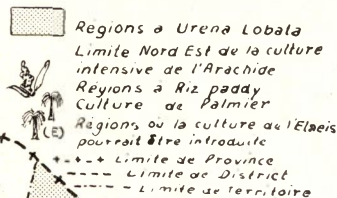 Regions a Urena Lobata
Limite Nord Est de la culture
intensive de l'Arachide
Regions a Riz paddy
Culture de Palmier
(E) Regions ou la culture de l'Elaeis
pourrait être introduite
Limite de Province
Limite de District
Limite de Territoire